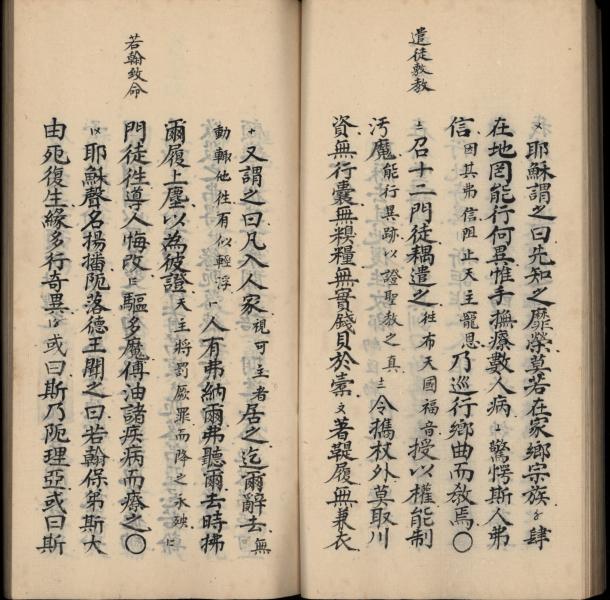 遣徒敷教
耶穌謂之曰先知之靡榮莫若在家鄉宗族肆
在地罔能行何異惟手撫療數人病驚愕斯人弗
信因其弗信阻止天主寵恩乃巡行鄉曲而教焉〇
召十二門徒耦遣之往布天國福音授以權能制
汚魔能行異跡以證聖教之真令攜杖外莫取川
資無行囊無糗糧無實錢貝於橐著鞮履無兼衣
若翰致命
又謂之曰凡入人家視可主者居之迄爾辭去無
動輒他徃有似輕浮人有弗納爾弗聽爾去時拂
爾履上塵以為彼證天主將罰厥罪而降之永殃
門徒徃導人悔改驅多魔傅油諸疾病而療之〇
耶穌聲名揚播阨落德王聞之曰若翰保弟斯大
由死復生緣多行奇異或曰斯乃阨理亞或曰斯